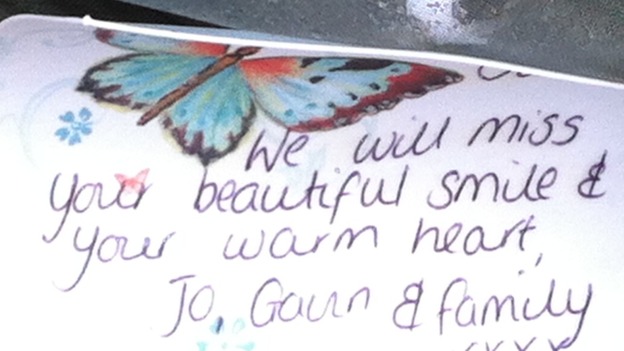 We will miss
your beautiful smile &
your warm heart,
Jo, Gavin & family
xxxx